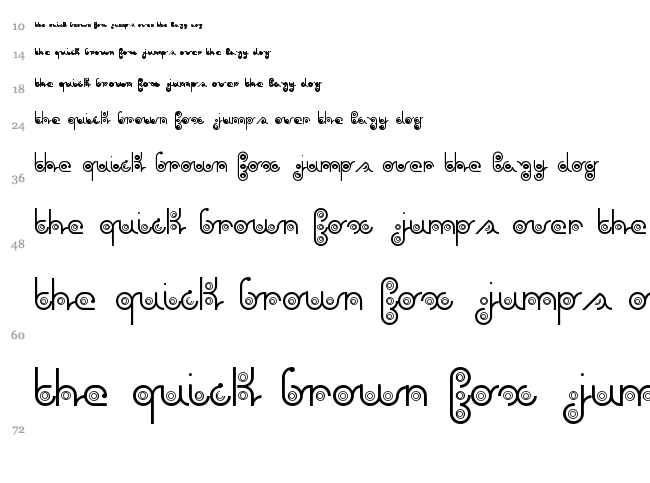 10 the quick brown fox jumps over the lazy dog
14 the quick brown fox jumps over the lazy dog
18 the quick brown fox jumps over the lazy dog
24 the quick brown fox jumps over the lazy dog
36 the quick brown fox jumps over the lazy dog
48 the quick brown fox jumps over the
60 the quick brown fox jumps o
72 the quick brown fox jum